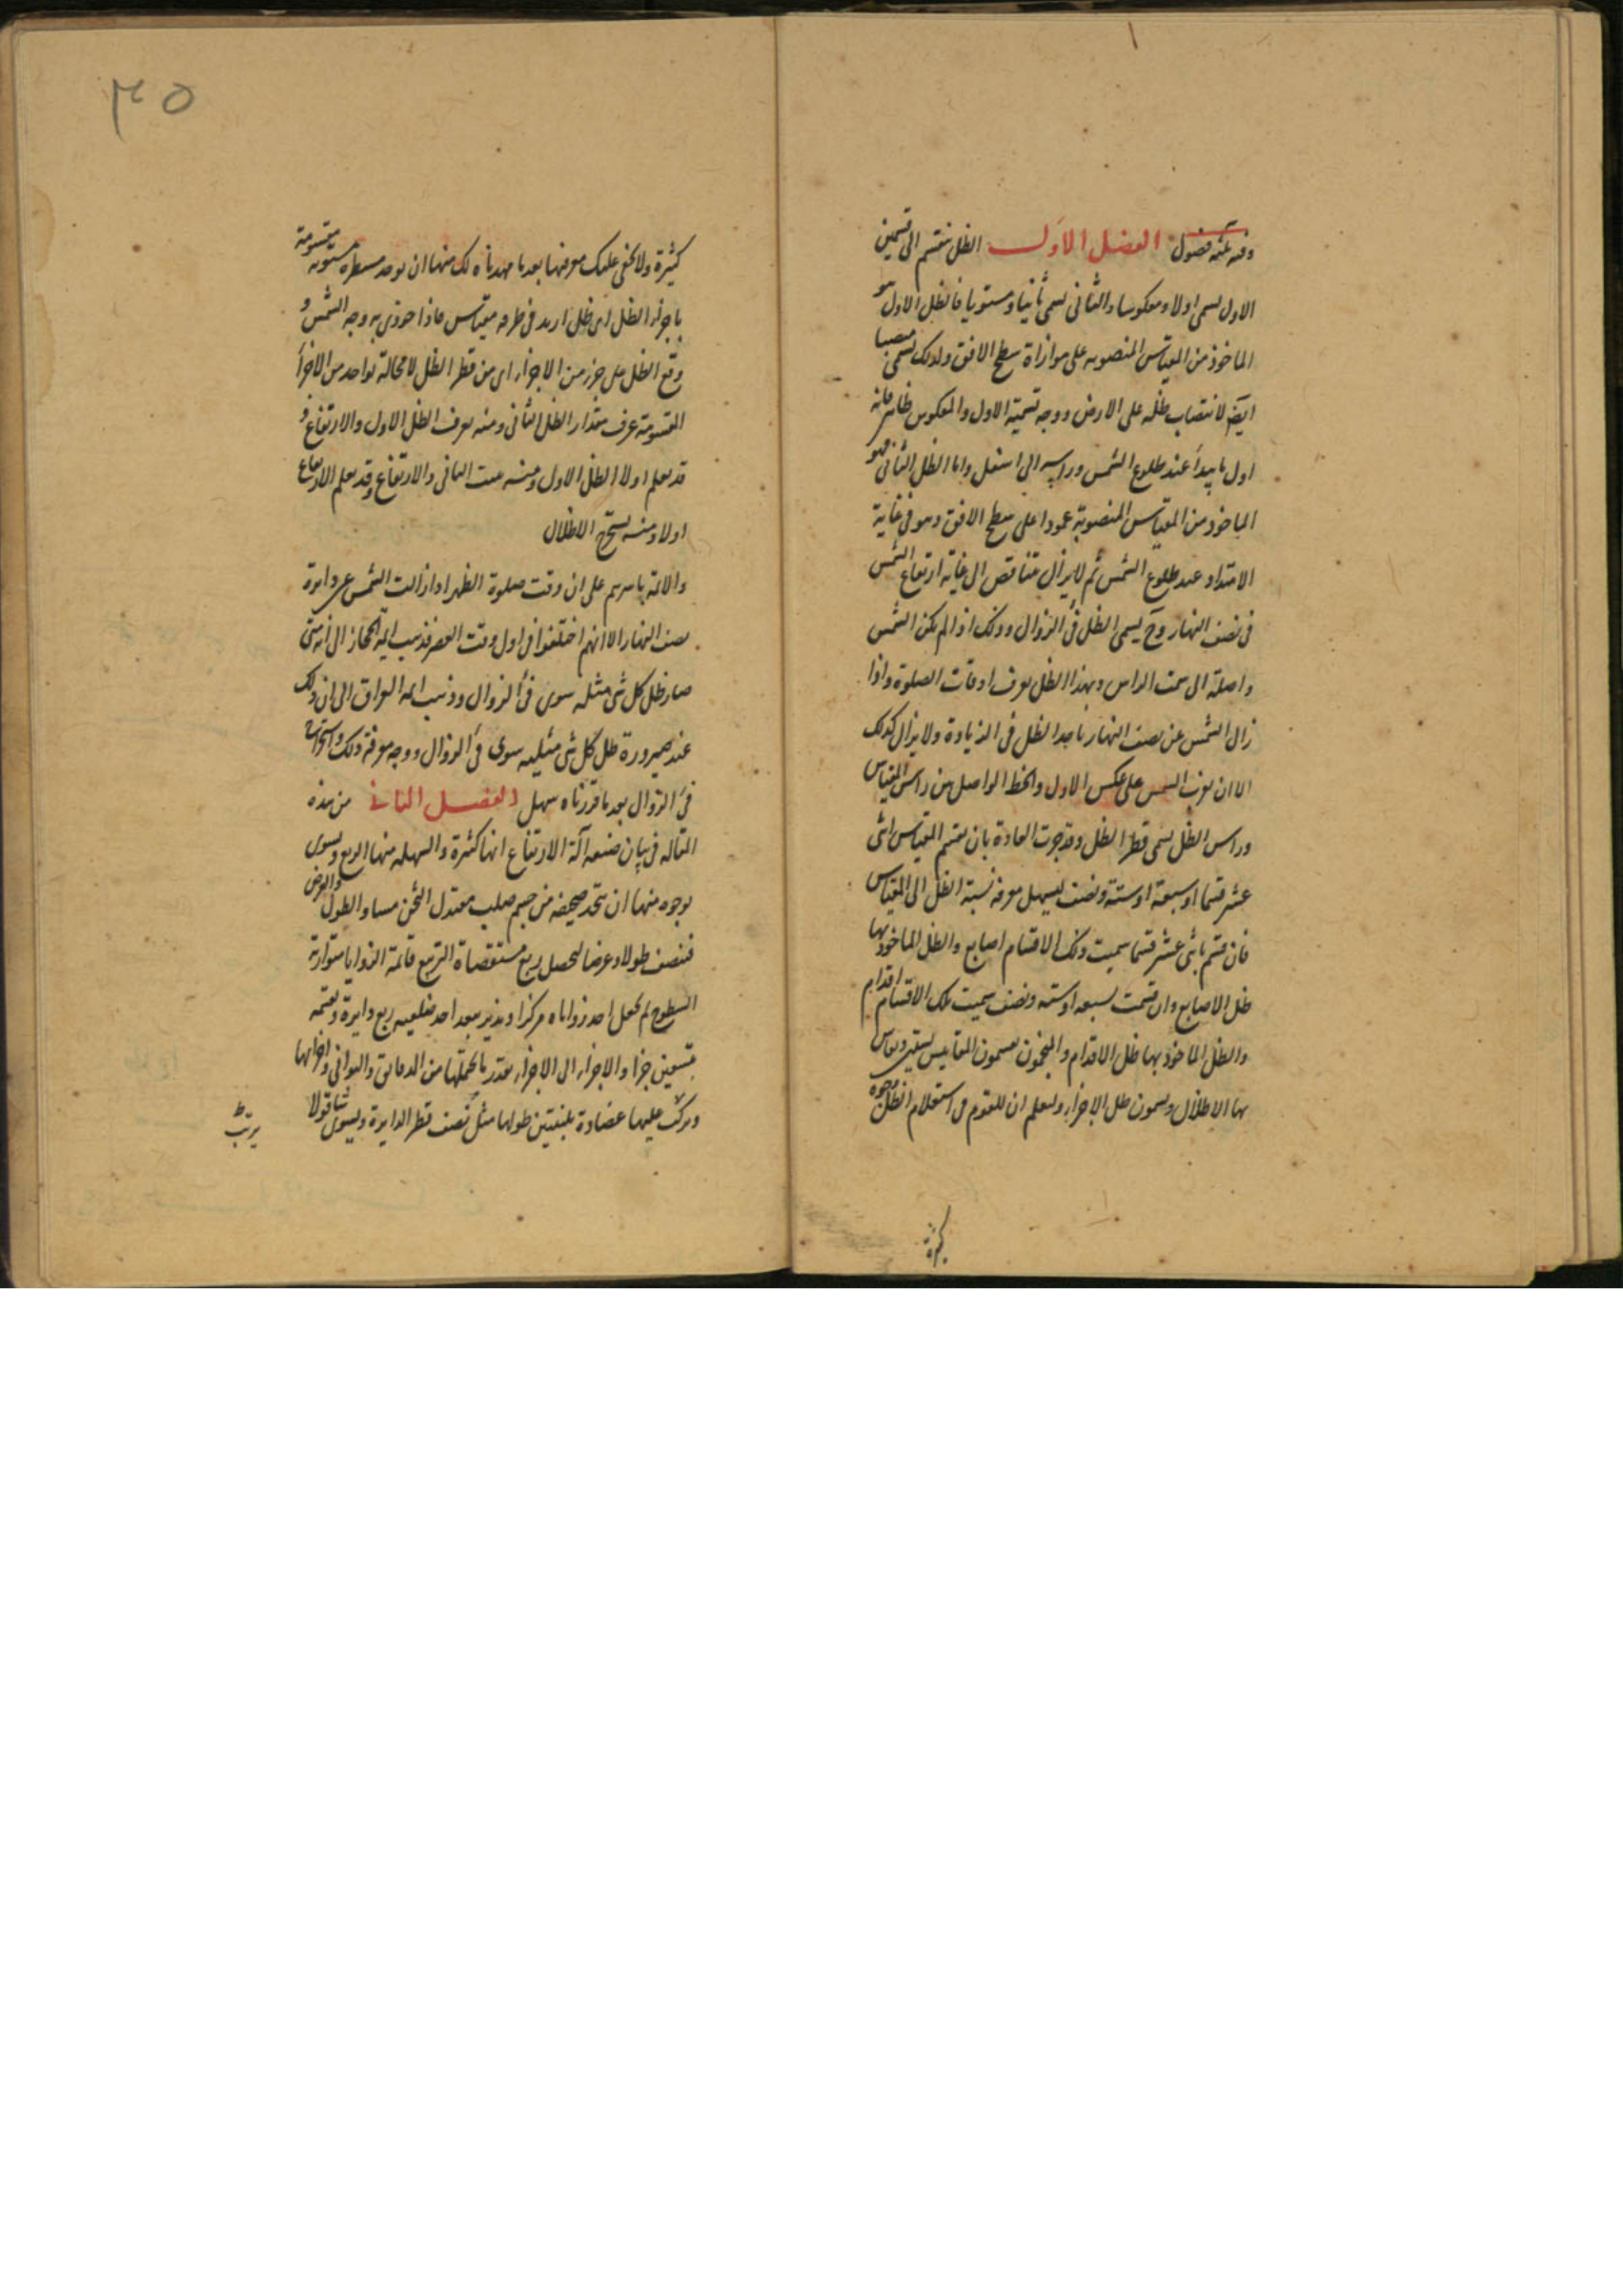 وفيه ثلثة فصول الفصل الاول الظل ينقسم الى قسمين
الاول يسمى اولا ومعكوسا والثانى يسمى ثانيا ومستويا فالظل الاول هو
الماخوذ من المقياس المنصوبه على موازاة سطح الافق ولذلك يسمى منتصبا
ايضا لانتصاب ظله على الارض ووجه تسميته الاول والمعكوس ظاهر فانه
اول ما يبدأ عند طلوع الشمس وراسه الى اسفل واما الظل الثانى فهو
الماخوذ من المقياس المنصوبة عمودا على سطح الافق وهو فى غاية
الامتداد عند طلوع الشمس ثم لايزال متناقص الى غاية ارتفاع الشمس
فى نصف النهار وح يسمى الظل فى الزوال وذلك اذا لم يكن الشمس
واصلة الى سمت الراس وبهذا الظل يعرف اوقات الصلوة واذا
زال الشمس عن نصف النهار ياخذ الظل فى الزيادة ولا يزال كذلك
الا ان يغرب الشمس على عكس الاول والخط الواصل بين راس المقياس
وراس الظل يسمى قطر الظل وقد جرت العادة بان يقسم المقياس اثنى
عشر قسما او سبعة او ستة ونصف ليسهل معرفة نسبة الظل الى المقياس
فان قسم باثنى عشر قسما سميت ذلك الاقسام اصابع والظل الماخوذ بها
ظل الاصابع وان قسمت بسبعه او سته ونصف سميت تلك الاقسام اقدام
والظل الماخوذ بها ظل الاقدام والمنجمون يقسمون المقاييس بستين
بها الاظلال ويسمون ظل الاجزاء وليعلم ان للقوم فى استعلام الظل وجوه
كثيرة
٣٥
كثيرة ولا يخفى عليك معرفتها بعد ما مهدناه لك منها ان يوخد مسطرة مستويه مقسومة
باجزاء الظل اى ظل اريد فى طرفه مقياس فاذا حوذى به وجه الشمس و
وقع الظل على جزء من الاجزاء اى من قطر الظل لا محالة بواحد من الاجزاء
المقسومة عرف مقدار الظل الثانى ومنه يعرف الظل الاول والارتفاع و
قد يعلم اولا الظل الاول ومنه الثانى والارتفاع وقد يعلم الارتفاع
اولا ومنه يستخرج الاظلال
والائمة باسرهم على ان وقت صلوة الظهر اذا زالت الشمس عن دايرة
نصف النهار الا انهم اختلفوا فى اول وقت العصر فذهب ايمة الحجاز الى انه متى
صار ظل كل شى مثله سوى فى الزوال وذهب ايمه العراق الى ان ذلك
عند صيرورة ظل كل شى مثليه سوى فى الزوال ووجه معرفة ذلك واستخراج
فى الزوال بعد ما قررناه سهل الفصل الثانى من هذه
المقاله فى بيان صنعه آلة الارتفاع انها كثيرة والسهله منها الربع ويسوى
بوجوه منها ان يتخذ صحيفه من جسم صلب معتدل الثخن مساو الطول والعرض
فنصف طولا وعرضا ليحصل ربع مستقصاة التربيع قائمة الزوايا متوازية
السطوح ثم يجعل احد زواياه مركزا ويدير ببعد احد ضلعيه ربع دايرة ونقسمه
بتسعين جزا والاجزاء الى الاجزاء بقدر ما يحتملها من الدقائق والثوانى واجزائها
ويركب عليها عضادة بلبنتين طولها مثل نصف قطر الدايرة ويسوى شاقولا
يربط